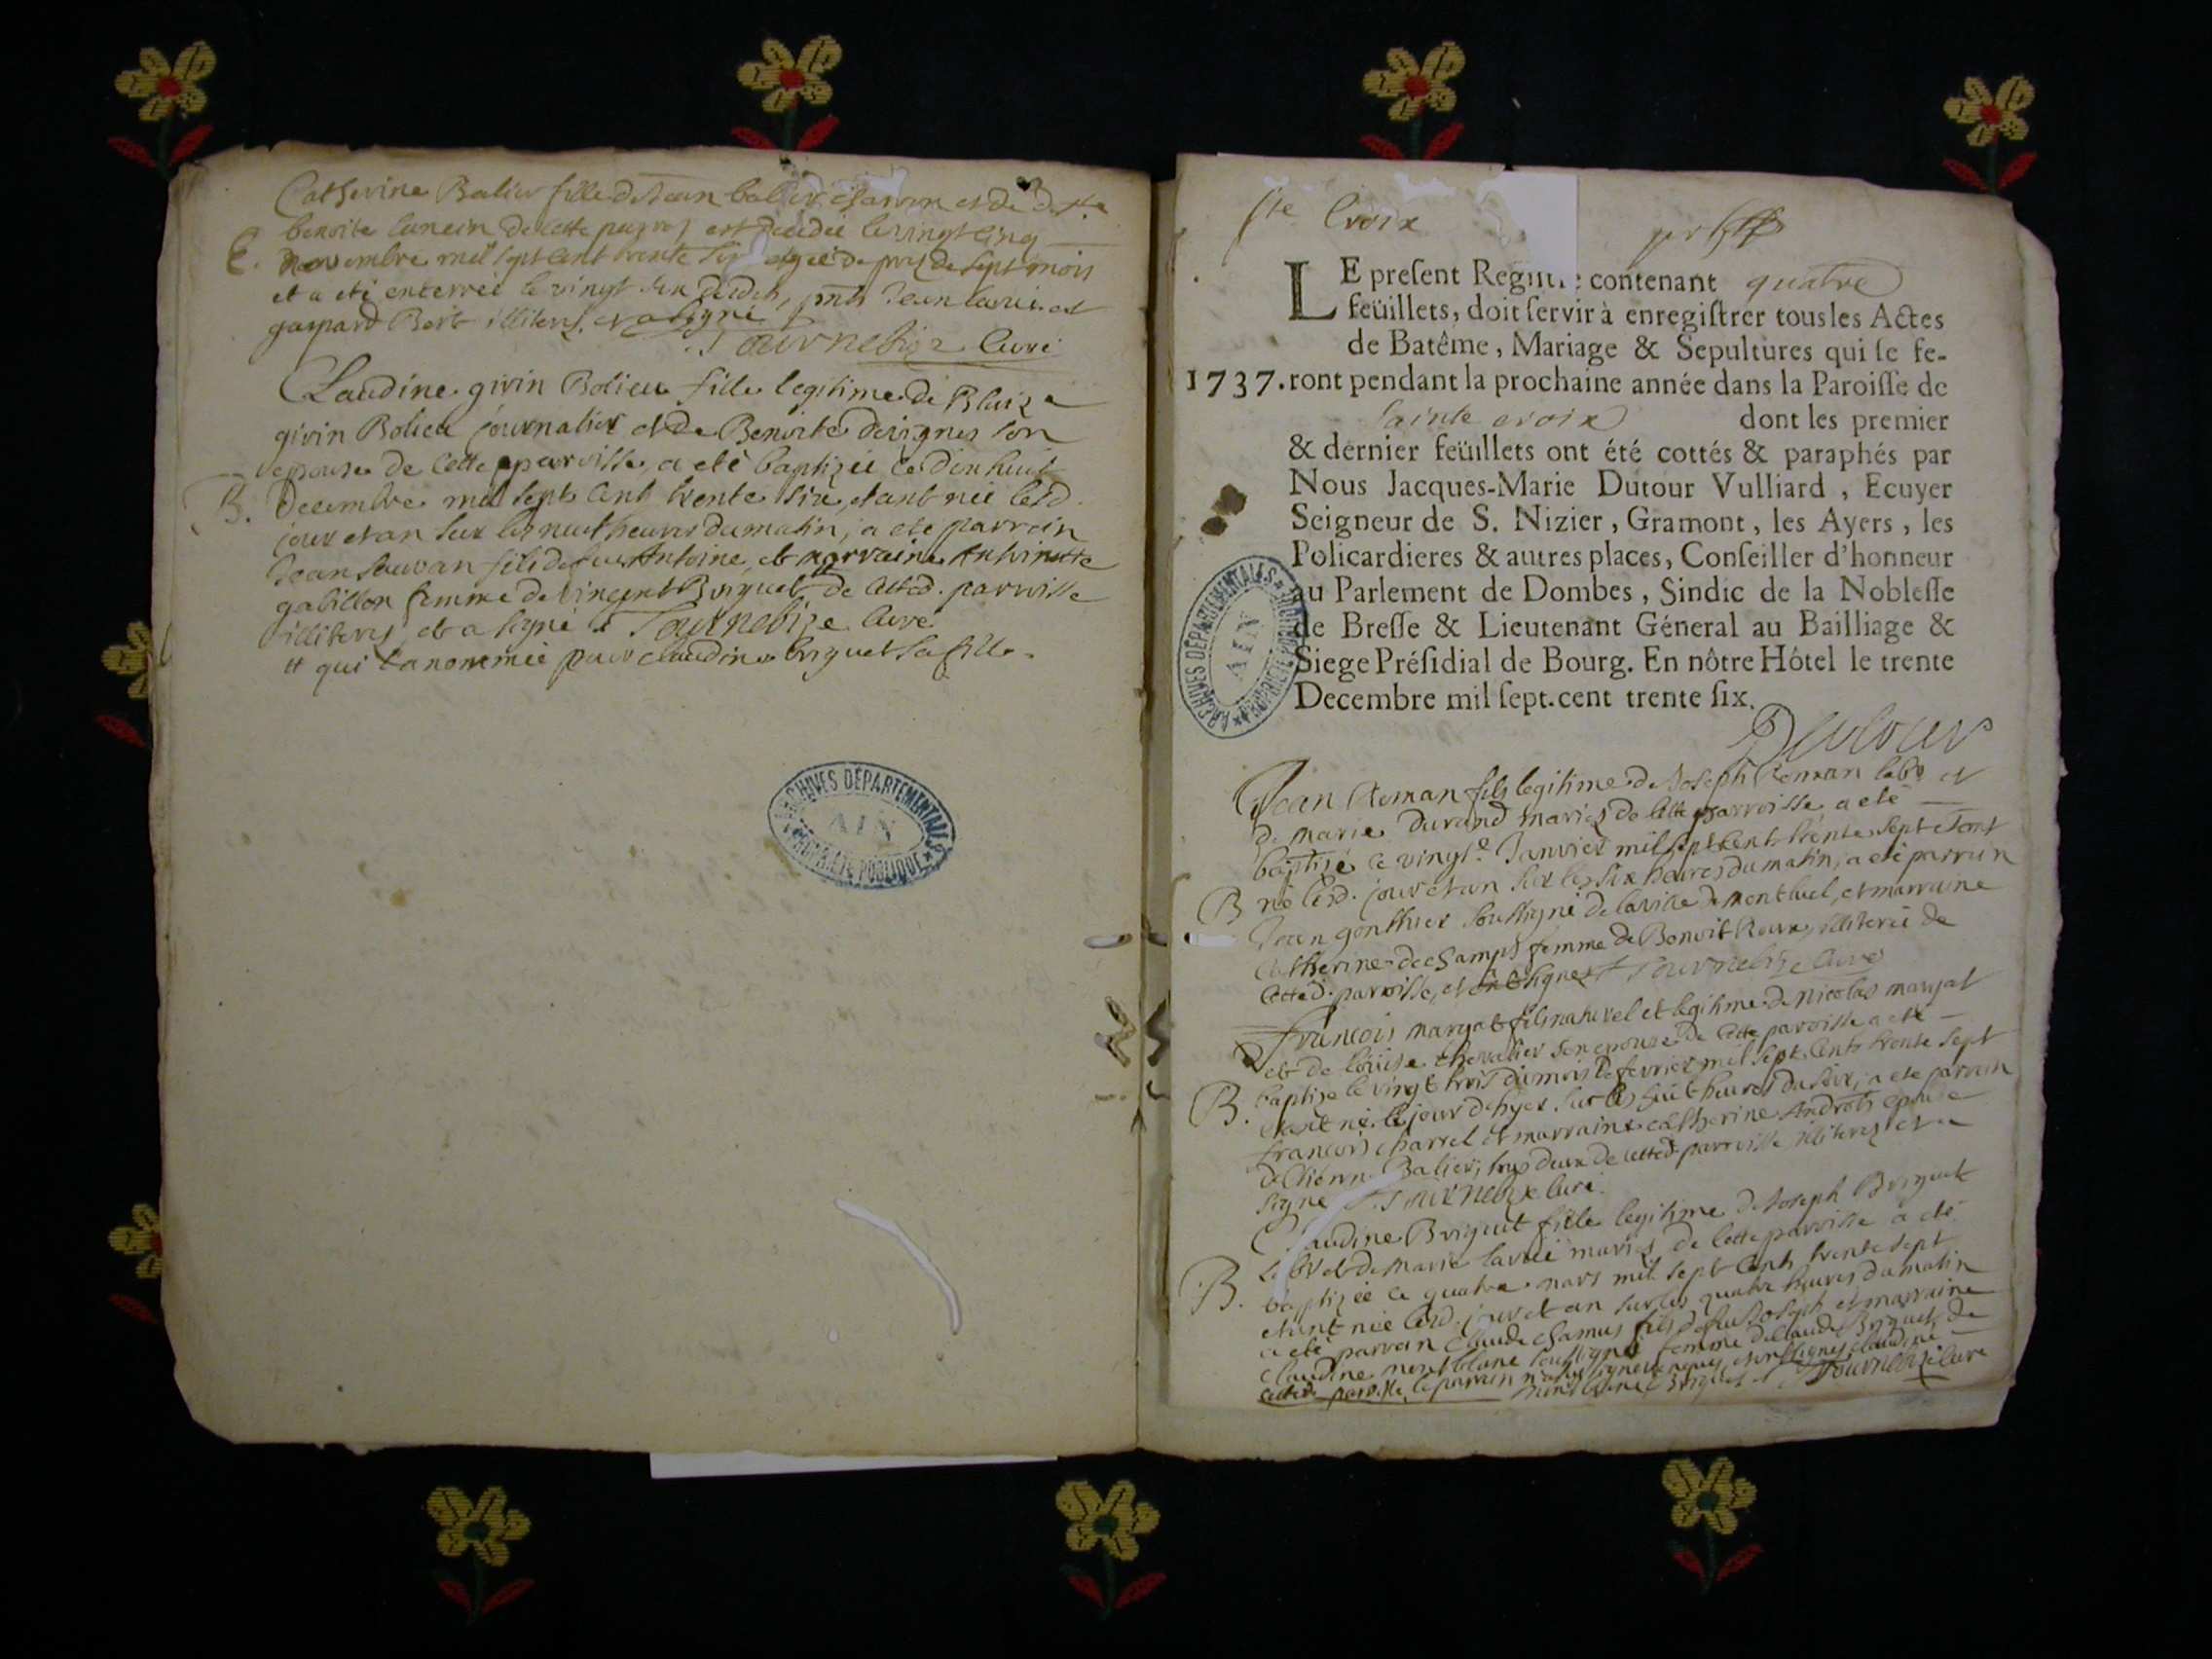 Catherine Balier fille de Jean balier charon et de
benoite lunein de cette parois est decedée le vingt cinq
E. novembre mil sept cent trente six agée de prez de sept mois
et a eté enterrée le vingt six dudit, pnts Jean lavie et
gaspard Bert illiterés, et a signé
Tournebize Curé
Claudine givin Bolieu fille legitime de Blaize
givin Bolieu journalier et de Benoite devignes son
epouse de cette parroisse, a eté baptizée le dix huit
B. Decembre mil sept cent trente six, etant née led.
jour et an sur les neuf heures du matin, a eté parrain
Jean Sauvan fils de feu Antoine, et marraine Antoinette
gabillon femme de vincent Briquet de cetted. parroisse
illiterés et a signé Tournebize Curé
# qui l'a nommée pour claudine briquet sa fille.
ARCHIVES DÉPARTEMENTALES
AIN
PROPRIÉTÉ PUBLIQUE
ste Croix
LE preſent Regiſtre contenant quatre
feüillets, doit ſervir à enregiſtrer tous les Actes
de Batême, Mariage & Sepultures qui ſe fe-
1737. ront pendant la prochaine année dans la Paroiſſe de
Sainte croix dont les premier
& dernier feüillets ont été cottés & paraphés par
Nous Jacques-Marie Dutour Vulliard, Ecuyer
Seigneur de S. Nizier, Gramont, les Ayers, les
Policardieres & autres places, Conſeiller d'honneur
au Parlement de Dombes, Sindic de la Nobleſſe
de Breſſe & Lieutenant Géneral au Bailliage &
Siege Préſidial de Bourg. En nôtre Hôtel le trente
Decembre mil ſept.cent trente ſix.
ARCHIVES DÉPARTEMENTALES
AIN
PROPRIÉTÉ PUBLIQUE
Dutour
Jean Roman fils legitime de Joseph Roman labr et
de marie Durand mariés de cette parroisse a eté
baptizé ce vingte Janvier mil sept cent trente sept etant
B né led. jour et an sur les six heures du matin, a eté parrain
Jean gonthier soussigné de la ville de montluel, et marraine
Catherine dechamps femme de Benoit Roux, illiterée de
cetted. parroisse, et ont signé Tournebize Curé
François margat fils naturel et legitime de Nicolas margat
et de loüise chevalier son epouze de cette paroisse a eté
B. baptizé le vingt trois du mois de fevrier mil sept cent trente sept
etant né le jour d'hyer sur les huit heures du soir, a eté parrain
françois charrel et marraine catherine Androts epouse
d'Etienne Balier, tous deux de cetted. parroisse illiterés et a
signé Tournebize Curé.
Claudine Briquet fille legitime de Joseph Briquet
labr et de Marie lavie mariés de cette paroisse a eté
B. baptizée ce quatre mars mil sept cent trente sept
etant née led. jour et an sur les quatre heures du matin
a eté parrain Claude chamus fils de feu Joseph et marraine
Claudine montblanc soussignée femme de Claude Briquet de
cetted. paroisse, le parrain n'a sçu signer enquis, et ont signés claudine
montblanc Briquet Tournebize Curé